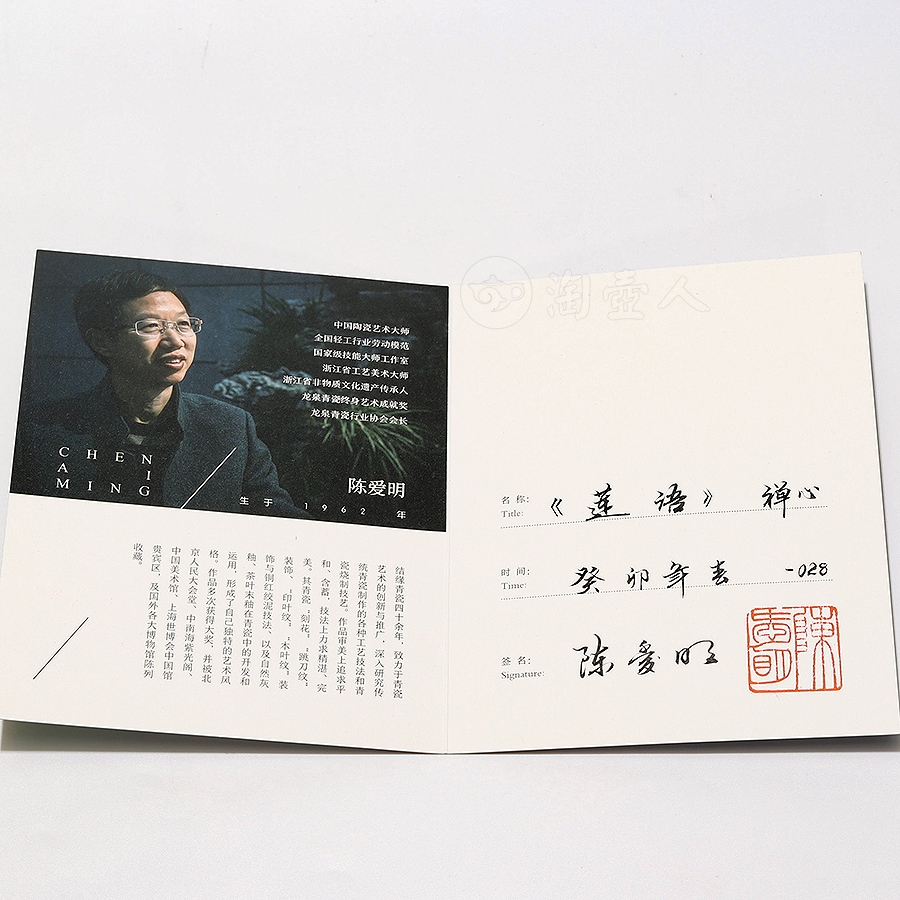 淘壶人
中国陶瓷艺术大师
全国轻工行业劳动模范
国家级技能大师工作室
浙江省工艺美术大师
浙江省非物质文化遗产传承人
龙泉青瓷终身艺术成就奖
龙泉青瓷行业协会会长
CHEN
AI
MING
陈爱明
生于1962年
结缘青瓷四十余年，致力于青瓷
艺术的创新与推广，深入研究传
统青瓷制作的各种工艺技法和青
瓷烧制技艺。作品审美上追求平
和、含蓄，技法上力求精湛、完
美。其青瓷：刻花，：跳刀纹：
装饰、：印叶纹，：木叶纹：装
饰与铜红绞泥技法、以及自然灰
釉、茶叶末釉在青瓷中的开发和
运用，形成了自己独特的艺术风
格。作品多次获得大奖，并被北
京人民大会堂、中南海紫光阁、
中国美术馆、上海世博会中国馆
贵宾区，及国外各大博物馆陈列
收藏。
名称：
Title:
《莲语》 禅心
时间：
Time:
癸卯年春 -028
签名：
Signature:
陈爱明
陳愛明